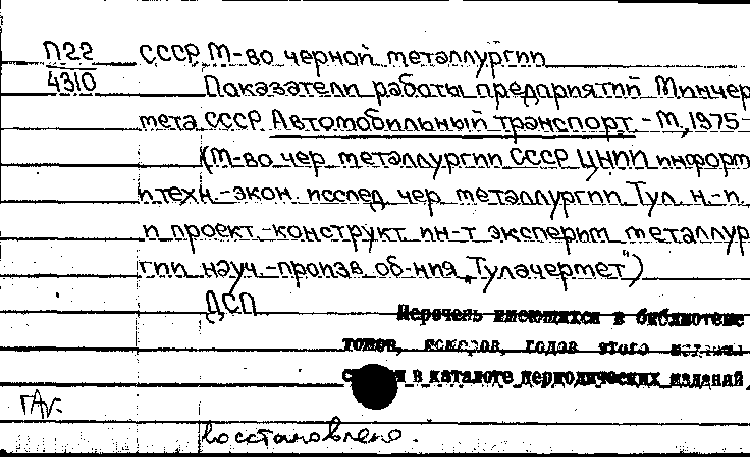 П22 СССР. М-во черной металлургии
4310 Показатели работы предприятий Минчер
мета СССР. Автомобильный транспорт. - М., 1975-
(М-во чер. металлургии СССР. ЦНИИ информ.
и техн.-экон. исслед. чер. металлургии. Тул. н.-и.
и проект.-конструкт. ин-т эксперим. металлур
гии науч.-произв. об-ния „Тулачермет")
ДСП
Перечень имеющихся в библиотеке
томов, номеров, годов этого издания
в каталоге периодических изданий
восстановлено.